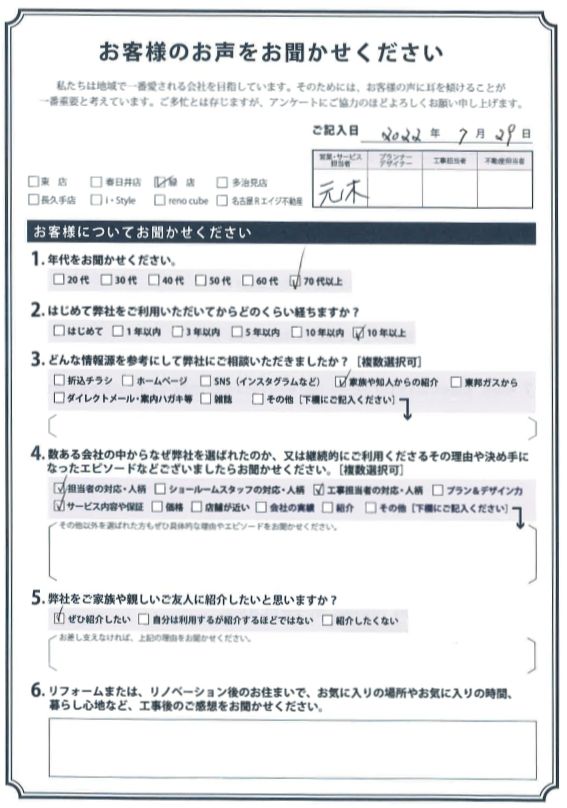 お客様のお声をお聞かせください
私たちは地域で一番愛される会社を目指しています。そのためには、お客様の声に耳を傾けることが
一番重要と考えています。ご多忙とは存じますが、アンケートにご協力のほどよろしくお願い申し上げます。
ご記入日 2022 年 7 月 29 日
営業・サービス担当者 プランナーデザイナー 工事担当者 不動産担当者
元木
□東 店 □春日井店 ☑緑 店 □多治見店
□長久手店 □i・Style □reno cube □名古屋Rエイジ不動産
お客様についてお聞かせください
1. 年代をお聞かせください。
□20代 □30代 □40代 □50代 □60代 ☑70代以上
2. はじめて弊社をご利用いただいてからどのくらい経ちますか？
□はじめて □1年以内 □3年以内 □5年以内 □10年以内 ☑10年以上
3. どんな情報源を参考にして弊社にご相談いただきましたか？［複数選択可］
□折込チラシ □ホームページ □SNS（インスタグラムなど） ☑家族や知人からの紹介 □東邦ガスから
□ダイレクトメール・案内ハガキ等 □雑誌 □その他［下欄にご記入ください］
4. 数ある会社の中からなぜ弊社を選ばれたのか、又は継続的にご利用くださるその理由や決め手に
なったエピソードなどございましたらお聞かせください。［複数選択可］
☑担当者の対応・人柄 □ショールームスタッフの対応・人柄 ☑工事担当者の対応・人柄 □プラン＆デザイン力
☑サービス内容や保証 □価格 □店舗が近い □会社の実績 □紹介 □その他［下欄にご記入ください］
その他以外を選ばれた方もぜひ具体的な理由やエピソードをお聞かせください。
5. 弊社をご家族や親しいご友人に紹介したいと思いますか？
☑ぜひ紹介したい □自分は利用するが紹介するほどではない □紹介したくない
お差し支えなければ、上記の理由をお聞かせください。
6. リフォームまたは、リノベーション後のお住まいで、お気に入りの場所やお気に入りの時間、
暮らし心地など、工事後のご感想をお聞かせください。